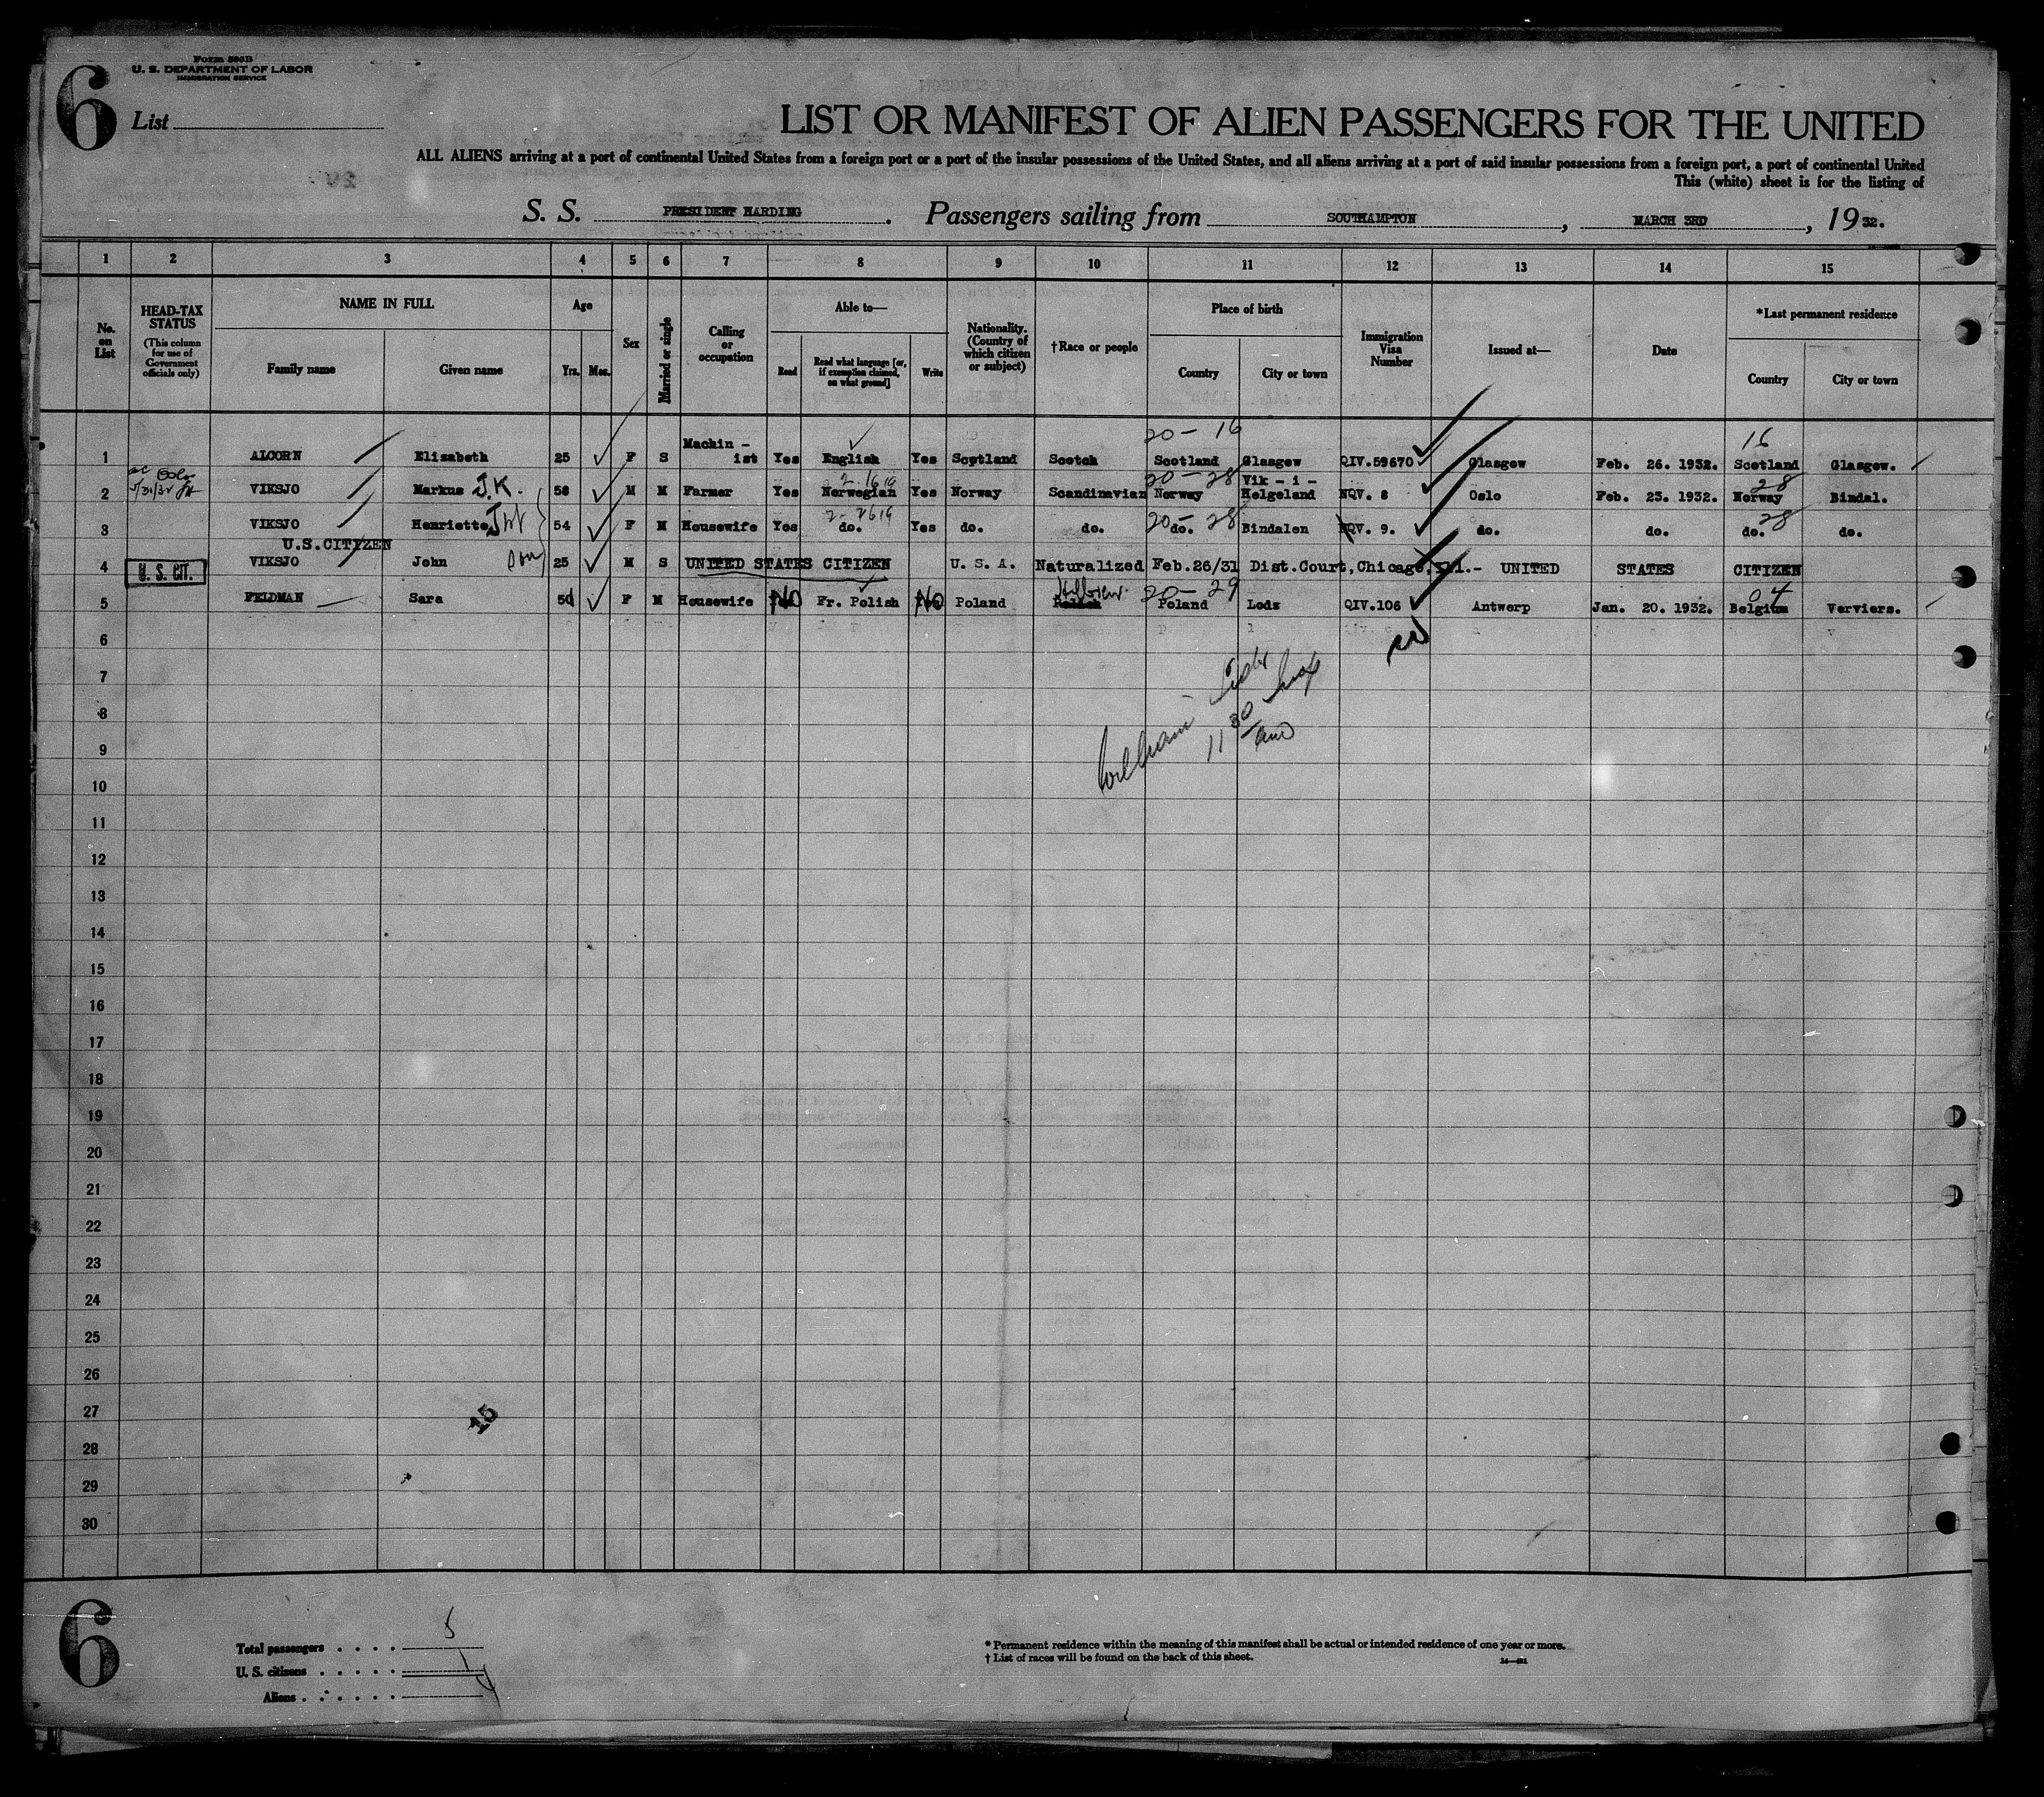 6
Form 500B
U. S. DEPARTMENT OF LABOR
IMMIGRATION SERVICE
List
LIST OR MANIFEST OF ALIEN PASSENGERS FOR THE UNITED
ALL ALIENS arriving at a port of continental United States from a foreign port or a port of the insular possessions of the United States, and all aliens arriving at a port of said insular possessions from a foreign port, a port of continental United
This (white) sheet is for the listing of
S. S. PRESIDENT HARDING. Passengers sailing from SOUTHAMPTON, MARCH 3RD, 1932.
1 2 3 4 5 6 7 8 9 10 11 12 13 14 15
No. on List
HEAD-TAX STATUS
(This column for use of Government officials only)
NAME IN FULL
Family name
Given name
Age
Yrs. Mos.
Sex
Married or single
Calling or occupation
Able to—
Read
Read what language [or, if exemption claimed, on what ground]
Write
Nationality. (Country of which citizen or subject)
†Race or people
Place of birth
Country
City or town
Immigration Visa Number
Issued at—
Date
*Last permanent residence
Country
City or town
20 - 16 16
1 ALCORN Elizabeth 25 F S Machin - ist Yes English Yes Scotland Scotch Scotland Glasgow QIV.59670 Glasgow Feb. 26. 1932. Scotland Glasgow.
20 - 28 28
2 VIKSJO Markus J.K. 58 M M Farmer Yes Norwegian Yes Norway Scandinavian Norway Vik - i - Helgeland NQV. 8 Oslo Feb. 23. 1932. Norway Bindal.
20 - 28 28
3 VIKSJO Henriette 54 F M Housewife Yes do. Yes do. do. do. Bindalen NQV. 9. do. do. do. do.
U.S.CITIZEN
4 U. S. CIT. VIKSJO John 25 M S UNITED STATES CITIZEN U. S. A. Naturalized Feb.26/31 Dist.Court,Chicago,Ill.- UNITED STATES CITIZEN
20 - 29 04
5 FELDMAN Sara 50 F M Housewife No Fr. Polish No Poland Hebrew Poland Lodz QIV.106 Antwerp Jan. 20. 1932. Belgium Verviers.
6
7
8
9
10
11
12
13
14
15
16
17
18
19
20
21
22
23
24
25
26
27
28
29
30
15
6
Total passengers . . . . 5
U. S. citizens . . . . . 1
Aliens . . . . . . 4
* Permanent residence within the meaning of this manifest shall be actual or intended residence of one year or more.
† List of races will be found on the back of this sheet.